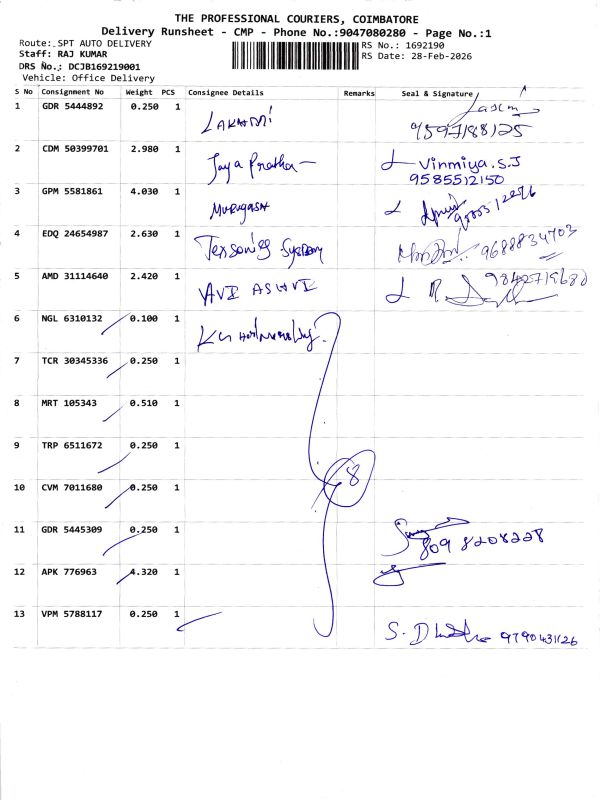 THE PROFESSIONAL COURIERS, COIMBATORE
Delivery Runsheet - CMP - Phone No.:9047080280 - Page No.:1
Route: SPT AUTO DELIVERY
Staff: RAJ KUMAR
DRS No.: DCJB169219001
Vehicle: Office Delivery
RS No.: 1692190
RS Date: 28-Feb-2026
S No Consignment No Weight PCS Consignee Details Remarks Seal & Signature
1 GDR 5444892 0.250 1 LAKHMI
9597188125
2 CDM 50399701 2.980 1 Jaya Pratha Vinmiya.S.J
9585512150
3 GPM 5581861 4.030 1 MURUGASH
4 EDQ 24654987 2.630 1 System 9688834703
5 AMD 31114640 2.420 1 AVI ASHVI 9842719680
6 NGL 6310132 0.100 1
7 TCR 30345336 0.250 1
8 MRT 105343 0.510 1
9 TRP 6511672 0.250 1
10 CVM 7011680 0.250 1
8
11 GDR 5445309 0.250 1 809 8208228
12 APK 776963 4.320 1
13 VPM 5788117 0.250 1
S. 9790431126